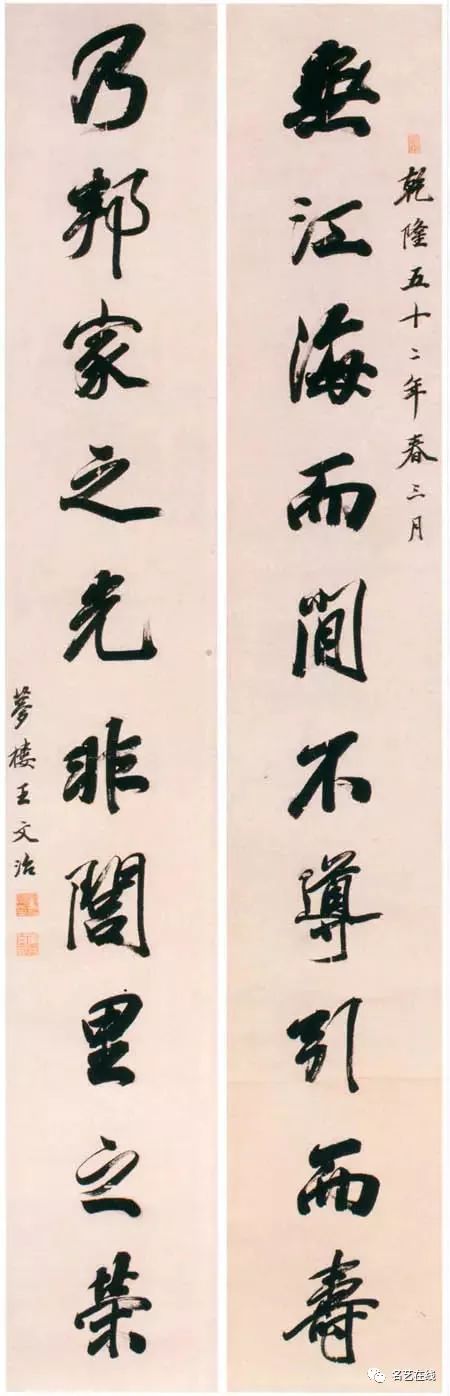 乾隆五十二年春三月
無江海而閒不導引而壽
乃邦家之光非閭里之榮
夢樓王文治
名艺在线